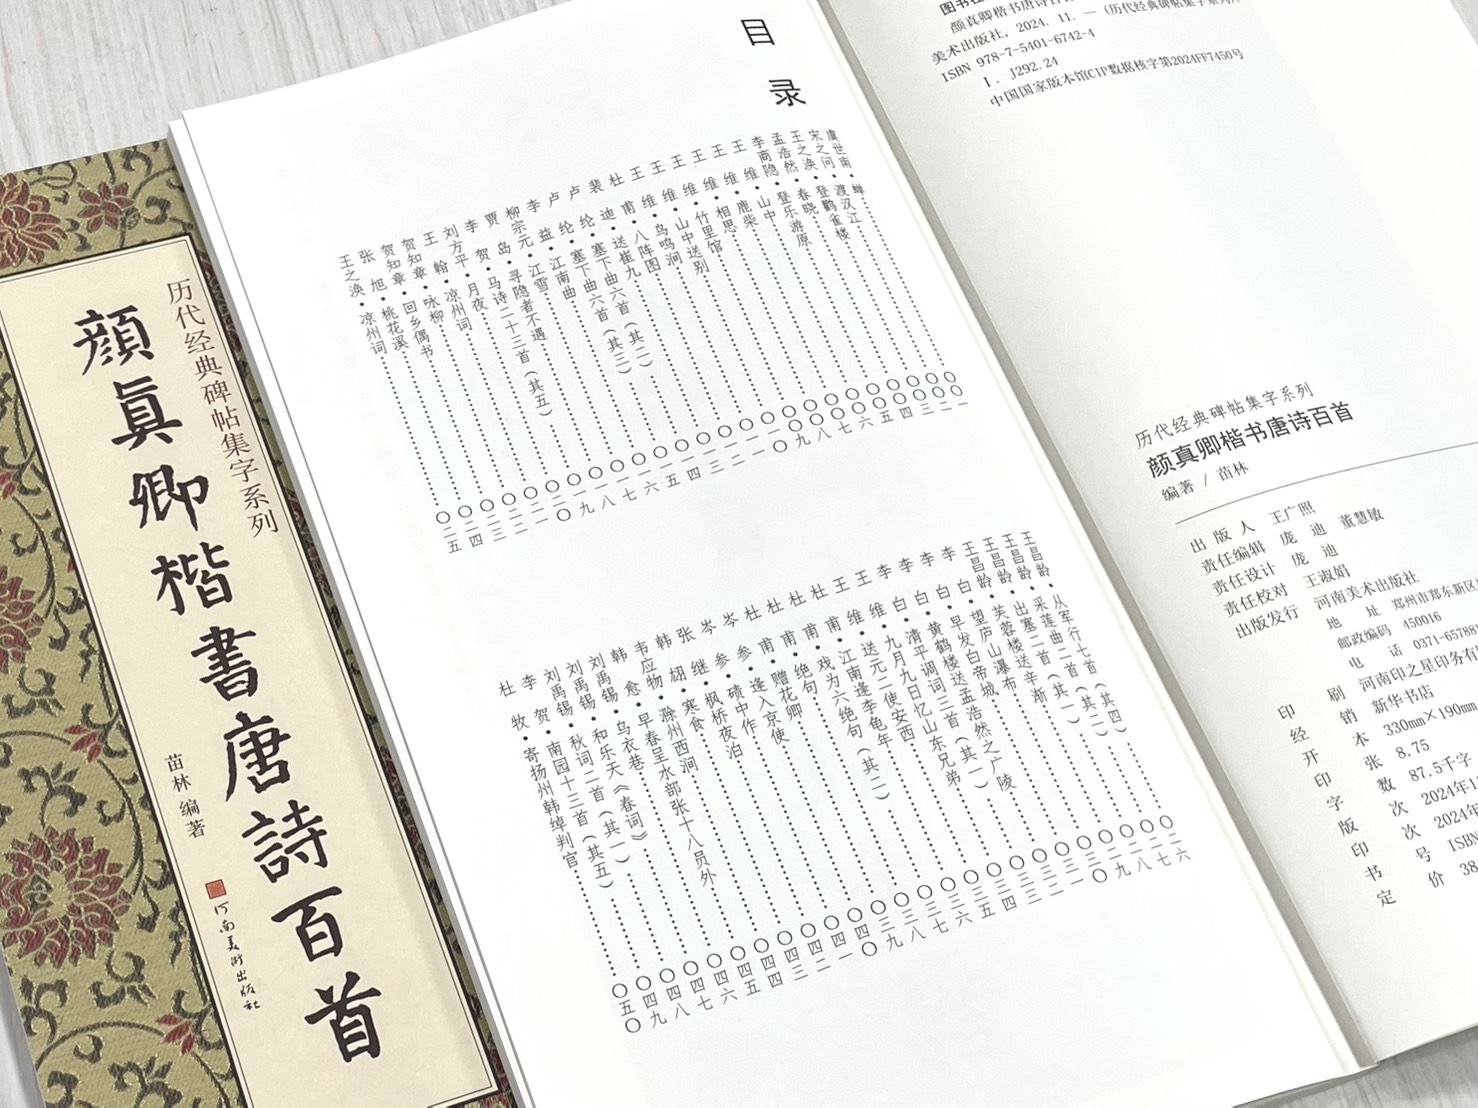 历代经典碑帖集字系列
顔真卿楷書唐詩百首
苗林 编著
河南美术出版社
目录
虞世南·蝉……〇〇一
宋之问·渡汉江……〇〇二
王之涣·登鹳雀楼……〇〇三
孟浩然·春晓……〇〇四
李商隐·登乐游原……〇〇五
王维·山中……〇〇六
王维·鹿柴……〇〇七
王维·相思……〇〇八
王维·竹里馆……〇〇九
王维·山中送别……〇一〇
王维·鸟鸣涧……〇一一
杜甫·八阵图……〇一二
裴迪·送崔九……〇一三
卢纶·塞下曲六首（其二）……〇一四
卢纶·塞下曲六首（其三）……〇一五
李益·江南曲……〇一六
柳宗元·江雪……〇一七
贾岛·寻隐者不遇……〇一八
李贺·马诗二十三首（其五）……〇一九
刘方平·月夜……〇二〇
王翰·凉州词……〇二一
贺知章·咏柳……〇二二
贺知章·回乡偶书……〇二三
张旭·桃花溪……〇二四
王之涣·凉州词……〇二五
王昌龄·从军行七首（其四）……〇二六
王昌龄·采莲曲二首（其二）……〇二七
王昌龄·出塞二首（其一）……〇二八
王昌龄·芙蓉楼送辛渐……〇二九
李白·望庐山瀑布……〇三〇
李白·早发白帝城……〇三一
李白·黄鹤楼送孟浩然之广陵……〇三二
李白·清平调词三首（其一）……〇三三
王维·九月九日忆山东兄弟……〇三四
王维·送元二使安西……〇三五
杜甫·江南逢李龟年……〇三六
杜甫·戏为六绝句（其二）……〇三七
杜甫·绝句……〇三八
杜甫·赠花卿……〇三九
岑参·逢入京使……〇四〇
岑参·碛中作……〇四一
张继·枫桥夜泊……〇四二
韩翃·寒食……〇四三
韦应物·滁州西涧……〇四四
韩愈·早春呈水部张十八员外……〇四五
刘禹锡·乌衣巷……〇四六
刘禹锡·和乐天《春词》……〇四七
刘禹锡·秋词二首（其一）……〇四八
李贺·南园十三首（其五）……〇四九
杜牧·寄扬州韩绰判官……〇五〇
图书在
颜真卿楷书唐诗百首
美术出版社，2024.11.—（历代经典碑帖集字系列）
ISBN 978-7-5401-6742-4
Ⅰ.J292.24
中国国家版本馆CIP数据核字第2024FF7450号
历代经典碑帖集字系列
颜真卿楷书唐诗百首
编著 / 苗林
出版人 王广照
责任编辑 庞迪 董慧敏
责任设计 庞迪
责任校对 王淑娟
出版发行 河南美术出版社
地址 郑州市郑东新区
邮政编码 450016
电话 0371-657881
印刷 河南印之星印务有
经销 新华书店
开本 330mm×190mm
印张 8.75
字数 87.5千字
版次 2024年1
印次 2024年
书号 ISBN
定价 38.